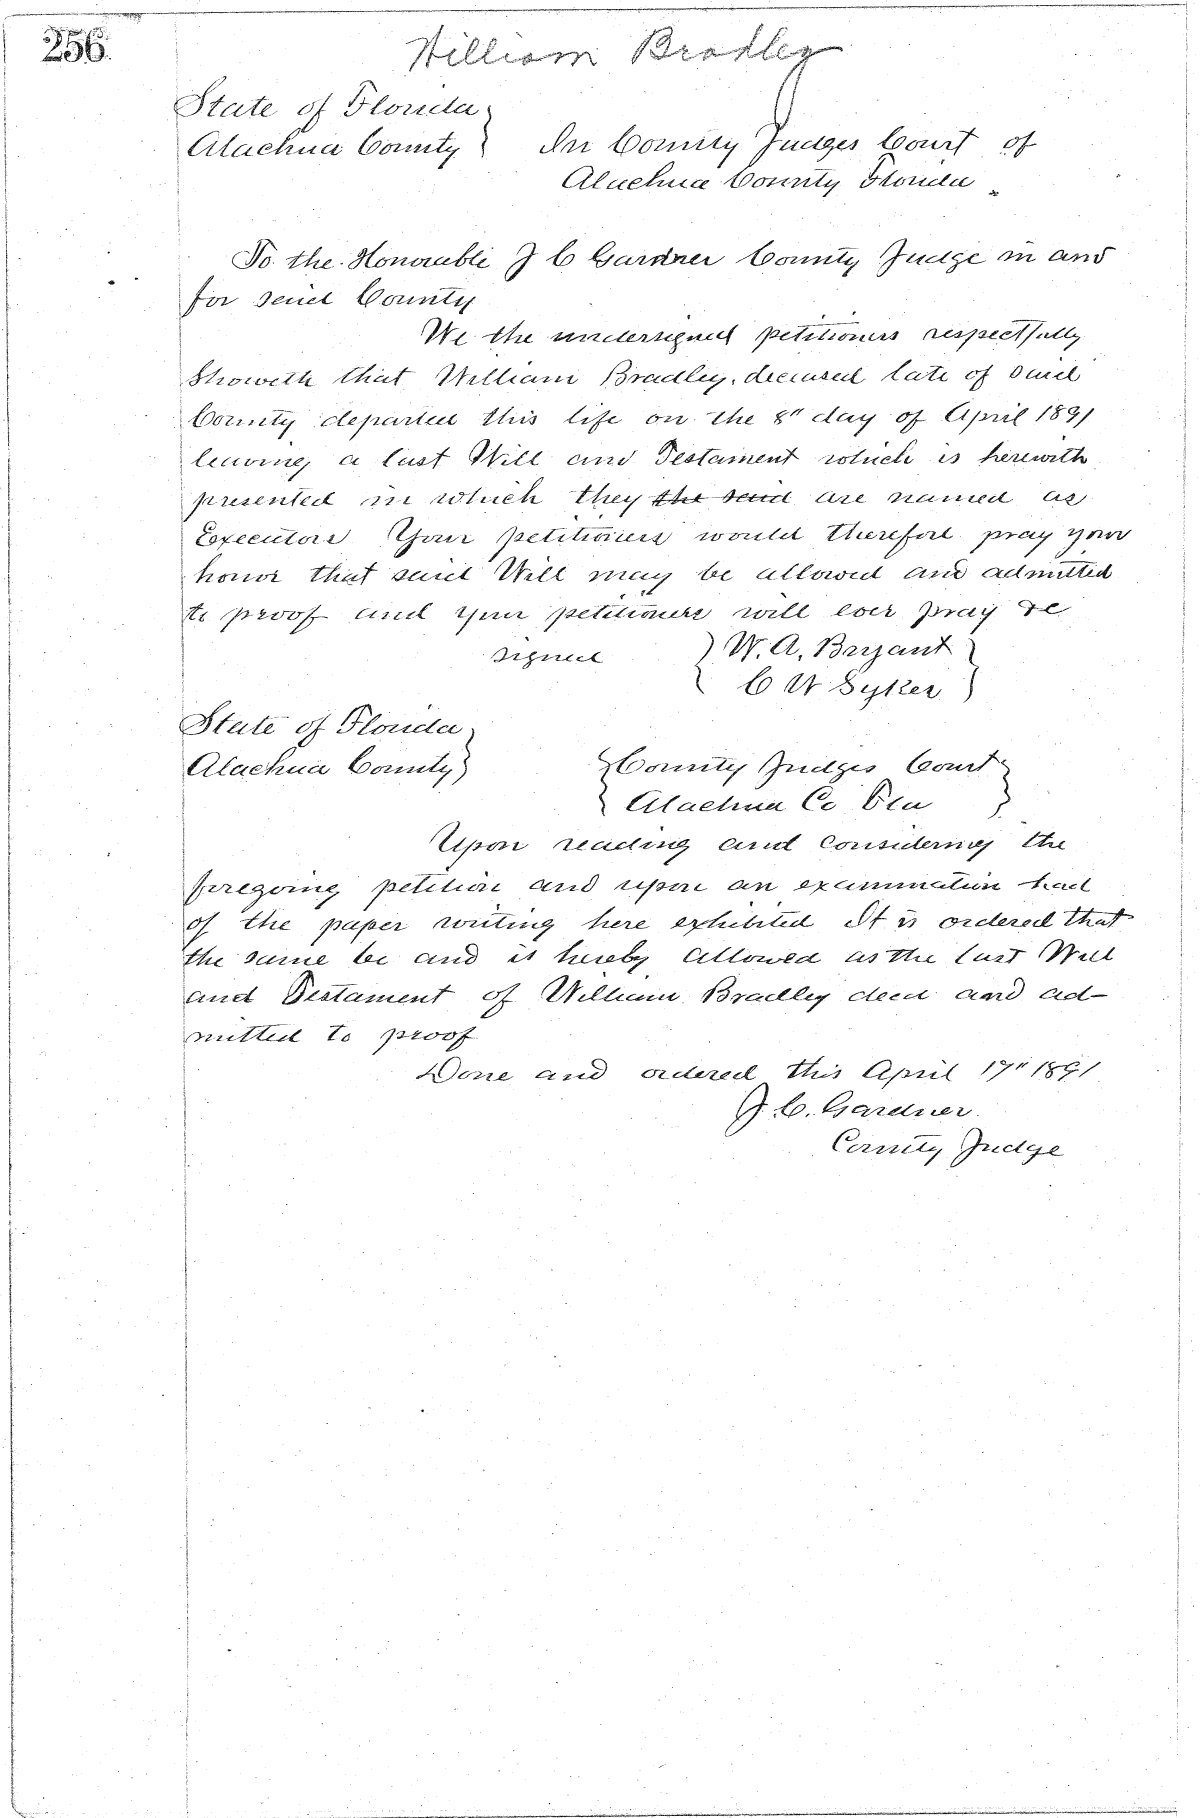 256.
William Bradley
State of Florida
Alachua County } In County Judges Court of
Alachua County Florida
To the Honorable J C Gardner County Judge in and
for said County
We the undersigned petitioners respectfully
Showeth that William Bradley, deceased late of said
County departed this life on the 8" day of April 1891
leaving a last Will and Testament which is herewith
presented in which they the said are named as
Executors Your petitioners would therefore pray your
honor that said Will may be allowed and admitted
to proof and your petitioners will ever pray &c
signed } W. A. Bryant }
{ C W Syker }
State of Florida
Alachua County } { County Judges Court }
{ Alachua Co Fla }
Upon reading and considering the
foregoing petition and upon an examination had
of the paper writing here exhibited It is ordered that
the same be and is hereby allowed as the last Will
and Testament of William Bradley decd and ad-
mitted to proof
Done and ordered this April 17" 1891
J. C. Gardner.
County Judge